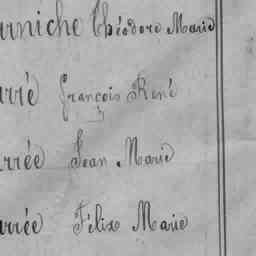 rniche Théodore Marie
rré François René
rrée Jean Marie
rrée Félix Marie